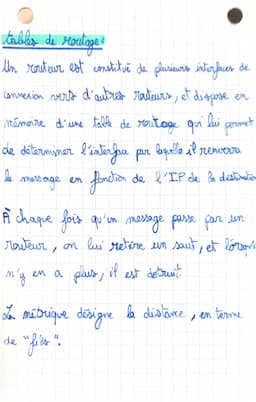 tables de routage :
Un routeur est constitué de plusieurs interfaces de
connexion vers d'autres routeurs, et dispose en
mémoire d'une table de routage qui lui permet
de déterminer l'interface par laquelle il renverra
le message en fonction de l'IP de la destination
À chaque fois qu'un message passe par un
routeur, on lui retire un saut, et lorsqu'il
n'y en a plus, il est détruit.
La métrique désigne la distance, en terme
de "